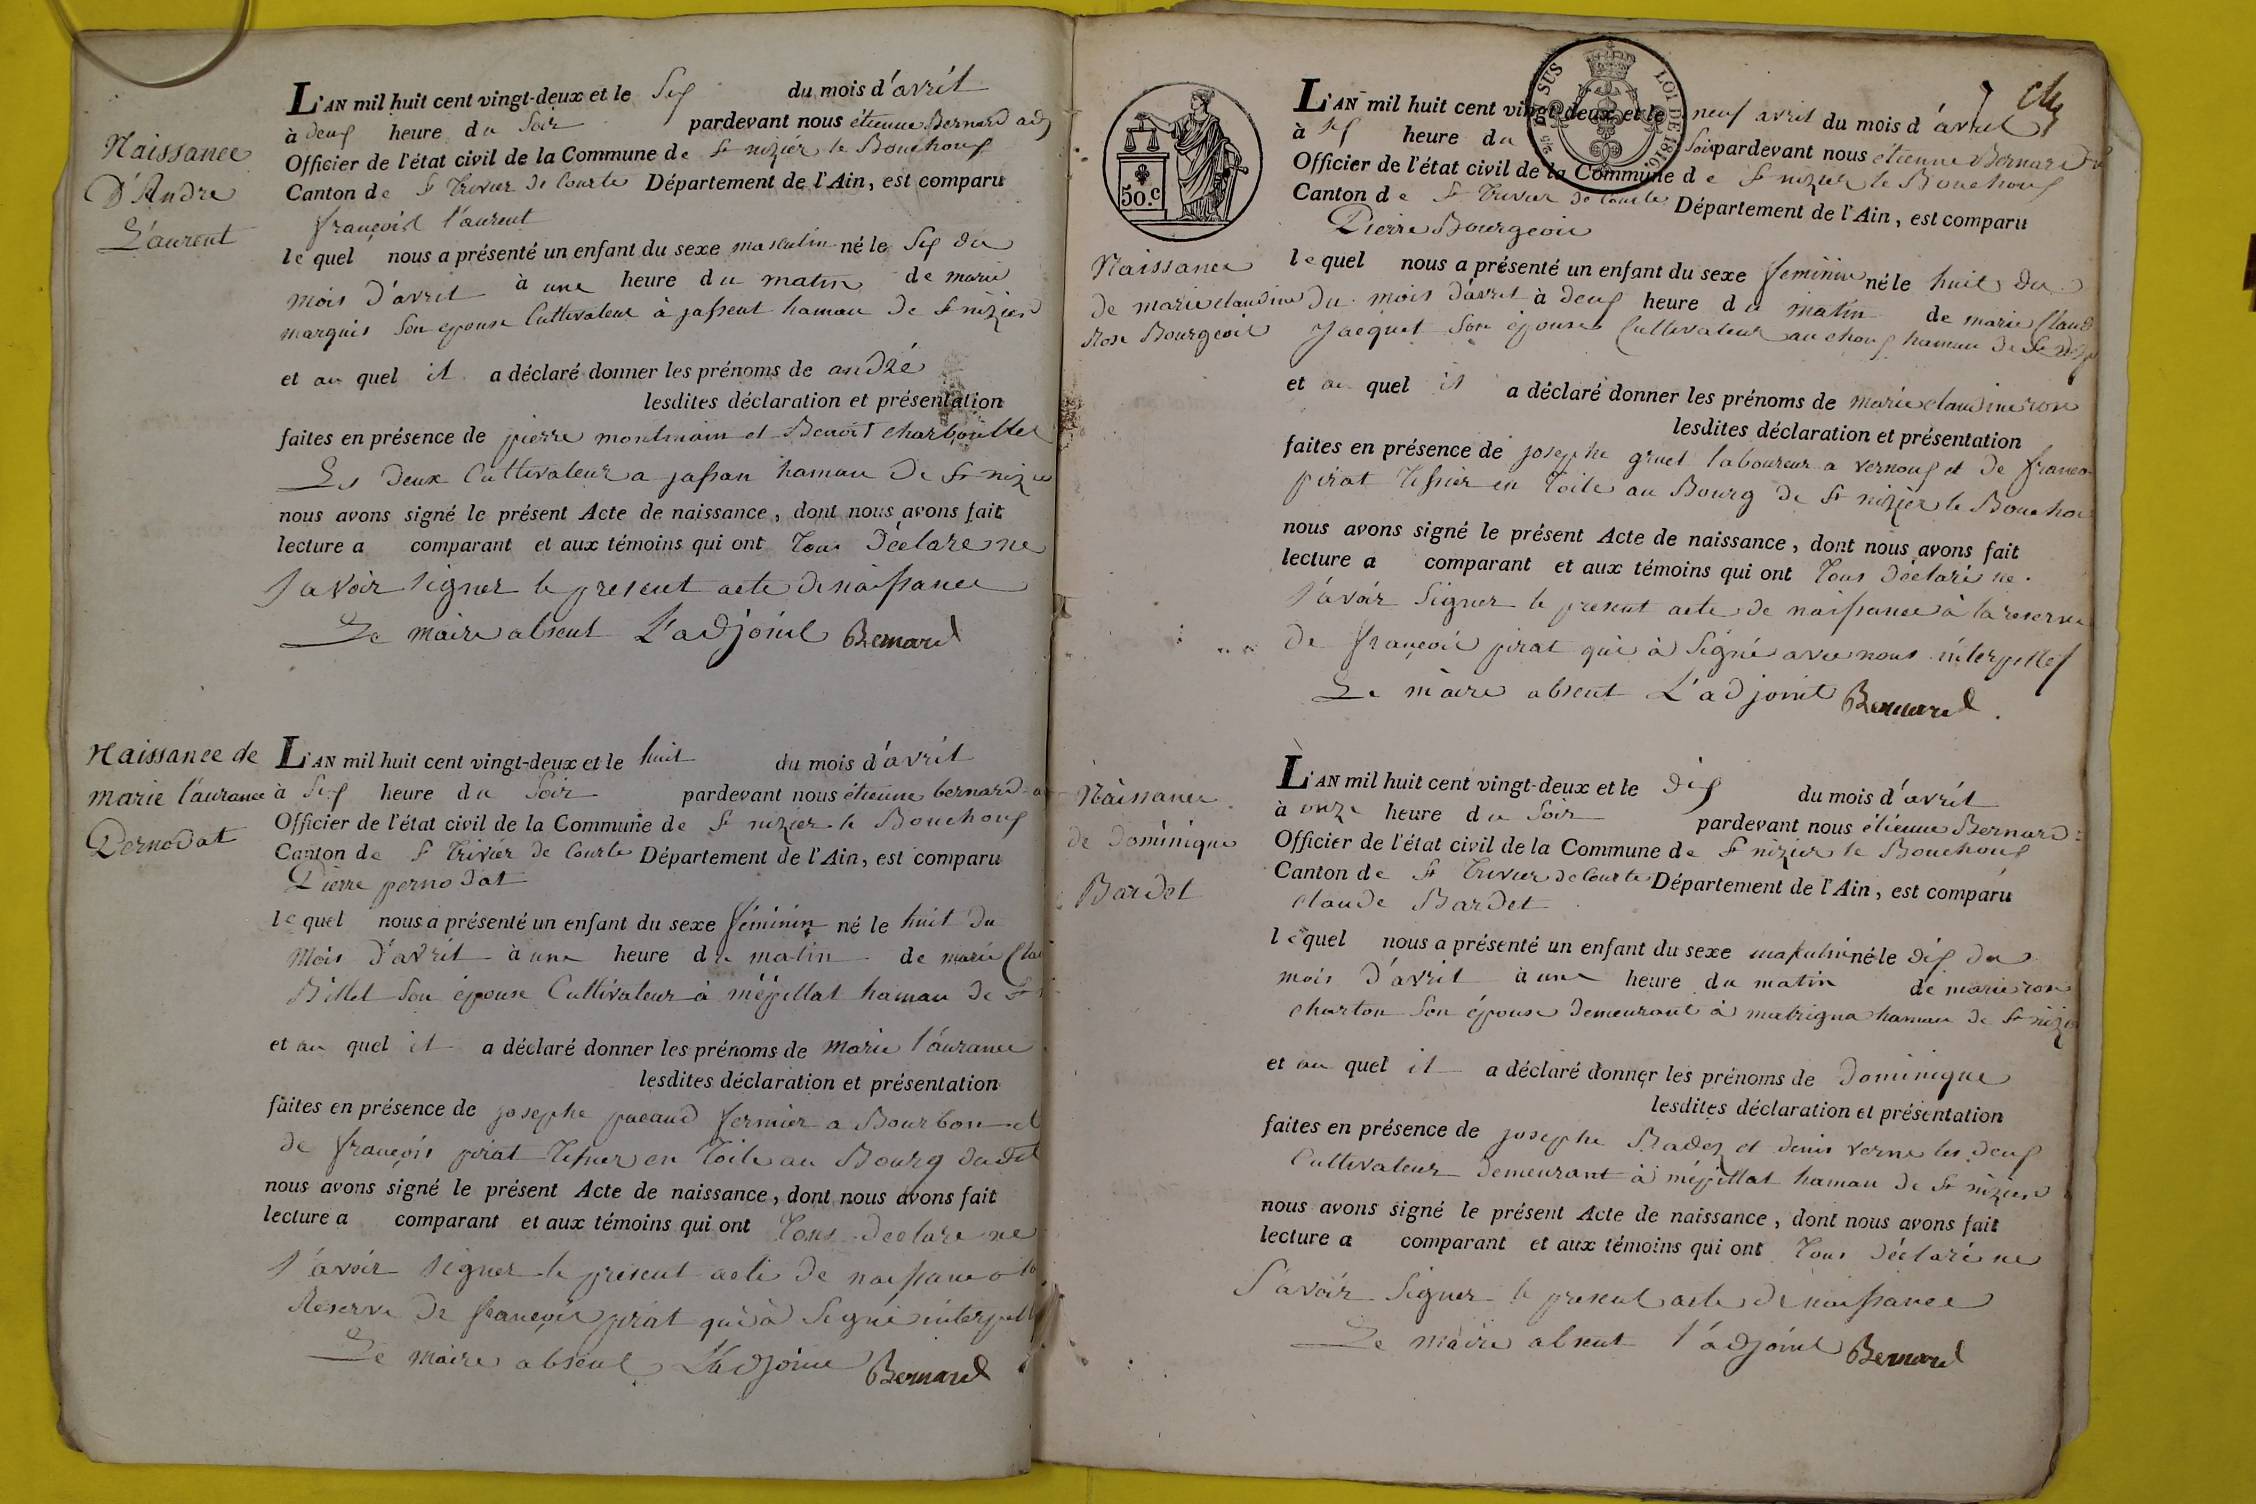 Naissance
D'Andre
Laurent
L'AN mil huit cent vingt-deux et le Six du mois d'avril
à deux heure du Soir pardevant nous étienne Bernard adj
Officier de l'état civil de la Commune de St nizier le Bouchoux
Canton de St Trivier de Courte Département de l'Ain, est comparu
françois laurent
lequel nous a présenté un enfant du sexe masculin né le Six du
mois d'avril à une heure du matin de marie
marquis Son epouse Cultivateur à jassent hamau de St nizier
et au quel il a déclaré donner les prénoms de andré
lesdites déclaration et présentation
faites en présence de pierre montmain et Benoît charbouillet
Les deux Cultivateur a jassan hamau de St nizie
nous avons signé le présent Acte de naissance, dont nous avons fait
lecture a comparant et aux témoins qui ont Tous Déclare ne
savoir signer le present acte de naissance
Le maire absent L'adjoint Bernard
Naissance de
marie l'aurance
Pernodat
L'AN mil huit cent vingt-deux et le huit du mois d'avril
à Six heure du Soir pardevant nous étienne bernard a
Officier de l'état civil de la Commune de St nizier le Bouchoux
Canton de St Trivier de Courte Département de l'Ain, est comparu
Pierre pernodat
lequel nous a présenté un enfant du sexe féminin né le huit du
mois d'avril à une heure du matin de marie Clau
Billet Son épouse Cultivateur à mépillat hamau de St
et au quel il a déclaré donner les prénoms de marie l'aurance
lesdites déclaration et présentation
faites en présence de josephe pacaud fermier a Bourbon et
de françois pirat Tissier en Toile au Bourg dudit
nous avons signé le présent Acte de naissance, dont nous avons fait
lecture a comparant et aux témoins qui ont Tous declare ne
s'avoir signer le present acte de naissance a la
Réserve de françois pirat qui à Signé interpell
Le maire absent L'adjoint Bernard
TI SUS LOI DE 1816.
50.c
L'AN mil huit cent vingt-deux et le neuf avril du mois d'avril
à six heure du Soir pardevant nous étienne Bernard
Officier de l'état civil de la Commune de St nizier le Bouchoux
Canton de St Trivier de Courte Département de l'Ain, est comparu
Pierre Bourgeois
Naissance
de marie claudine
Rose Bourgeois
lequel nous a présenté un enfant du sexe feminin né le huit du
du mois d'avril à deux heure du matin de marie Claud
Jacquet Son épouse Cultivateur au choux hamau de St niz
et au quel il a déclaré donner les prénoms de marie claudine rose
lesdites déclaration et présentation
faites en présence de josephe gruet laboureur a vernoux et de franco
pirat Tissier en Toile au Bourg de St nizier le Bouchou
nous avons signé le présent Acte de naissance, dont nous avons fait
lecture a comparant et aux témoins qui ont Tous déclaré ne
s'avoir Signer le present acte de naissance à la reserve
de françois pirat qui à Signé avec nous interpellés
Le maire absent L'adjoint Bernard
Naissance
de Dominique
Bardet
L'AN mil huit cent vingt-deux et le dix du mois d'avril
à onze heure du Soir pardevant nous étienne Bernard
Officier de l'état civil de la Commune de St nizier le Bouchoux
Canton de St Trivier de Courte Département de l'Ain, est comparu
claude Bardet
lequel nous a présenté un enfant du sexe masculin né le dix du
mois d'avril à une heure du matin de marie rose
charton Son épouse demeurant à matrigna hamau de St nizie
et au quel il a déclaré donner les prénoms de Dominique
lesdites déclaration et présentation
faites en présence de josephe Badez et denis verne les deux
Cultivateur demeurant à mépillat hamau de St nizier
nous avons signé le présent Acte de naissance, dont nous avons fait
lecture a comparant et aux témoins qui ont Tous déclaré ne
s'avoir Signer le present acte de naissance
Le maire absent l'adjoint Bernard